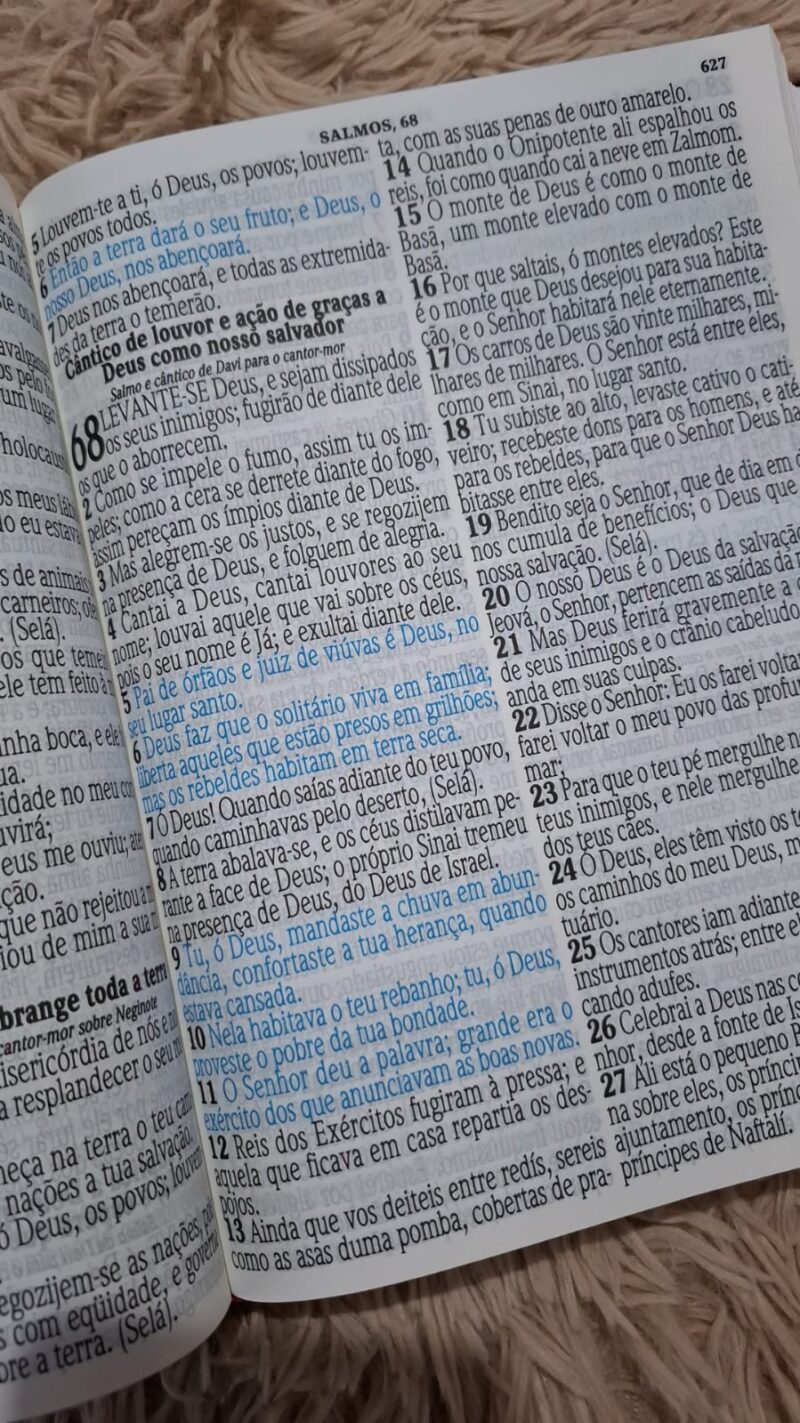 a
holocaust
do eu estava
s de animais
carneiros;
. (Selá).
os que
ele tem feito à
inha boca, e ele
ua.
idade no meu
uvirá;
eus me ouviu;
ção.
que não rejeitou a
iou de mim a sua
brange toda a
cantor-mor sobre Neginote
isericórdia de nós e
a resplandecer o seu
heça na terra o teu
nações a tua salvação.
ó Deus, os povos;
egozijem-se as nações,
s com eqüidade, e
bre a terra. (Selá).
SALMOS, 68
627
5 Louvem-te a ti, ó Deus, os povos; louvem-
te os povos todos.
6 Então a terra dará o seu fruto; e Deus, o
nosso Deus, nos abençoará.
7 Deus nos abençoará, e todas as extremida-
des da terra o temerão.
Cântico de louvor e ação de graças a
Deus como nosso salvador
Salmo e cântico de Davi para o cantor-mor
68 LEVANTE-SE Deus, e sejam dissipados
os seus inimigos; fugirão de diante dele
os que o aborrecem.
2 Como se impele o fumo, assim tu os im-
peles; como a cera se derrete diante do fogo,
assim pereçam os ímpios diante de Deus.
3 Mas alegrem-se os justos, e se regozijem
na presença de Deus, e folguem de alegria.
4 Cantai a Deus, cantai louvores ao seu
nome; louvai aquele que vai sobre os céus,
pois o seu nome é Já; e exultai diante dele.
5 Pai de órfãos e juiz de viúvas é Deus, no
seu lugar santo.
6 Deus faz que o solitário viva em família;
liberta aqueles que estão presos em grilhões;
mas os rebeldes habitam em terra seca.
7 Ó Deus! Quando saías adiante do teu povo,
quando caminhavas pelo deserto, (Selá).
8 A terra abalava-se, e os céus distilavam pe-
rante a face de Deus; o próprio Sinai tremeu
na presença de Deus, do Deus de Israel.
9 Tu, ó Deus, mandaste a chuva em abun-
dância, confortaste a tua herança, quando
estava cansada.
10 Nela habitava o teu rebanho; tu, ó Deus,
proveste o pobre da tua bondade.
11 O Senhor deu a palavra; grande era o
exército dos que anunciavam as boas novas.
12 Reis dos Exércitos fugiram à pressa; e
aquela que ficava em casa repartia os des-
pojos.
13 Ainda que vos deiteis entre redís, sereis
como as asas duma pomba, cobertas de pra-
ta, com as suas penas de ouro amarelo.
14 Quando o Onipotente ali espalhou os
reis, foi como quando cai a neve em Zalmom.
15 O monte de Deus é como o monte de
Basã, um monte elevado com o monte de
Basã.
16 Por que saltais, ó montes elevados? Este
é o monte que Deus desejou para sua habita-
ção, e o Senhor habitará nele eternamente.
17 Os carros de Deus são vinte milhares, mi-
lhares de milhares. O Senhor está entre eles,
como em Sinai, no lugar santo.
18 Tu subiste ao alto, levaste cativo o cati-
veiro; recebeste dons para os homens, e até
para os rebeldes, para que o Senhor Deus ha-
bitasse entre eles.
19 Bendito seja o Senhor, que de dia em
nos cumula de benefícios; o Deus que
nossa salvação. (Selá).
20 O nosso Deus é o Deus da salvação
Jeová, o Senhor, pertencem as saídas da
21 Mas Deus ferirá gravemente a
de seus inimigos e o crânio cabeludo
anda em suas culpas.
22 Disse o Senhor: Eu os farei voltar
farei voltar o meu povo das
mar;
23 Para que o teu pé mergulhe
teus inimigos, e nele mergulhe
dos teus cães.
24 Ó Deus, eles têm visto os
os caminhos do meu Deus,
tuário.
25 Os cantores iam adiante,
instrumentos atrás; entre
cando adufes.
26 Celebrai a Deus nas
nhor, desde a fonte de
27 Ali está o pequeno
na sobre eles, os
ajuntamento, os
príncipes de Naftalí.